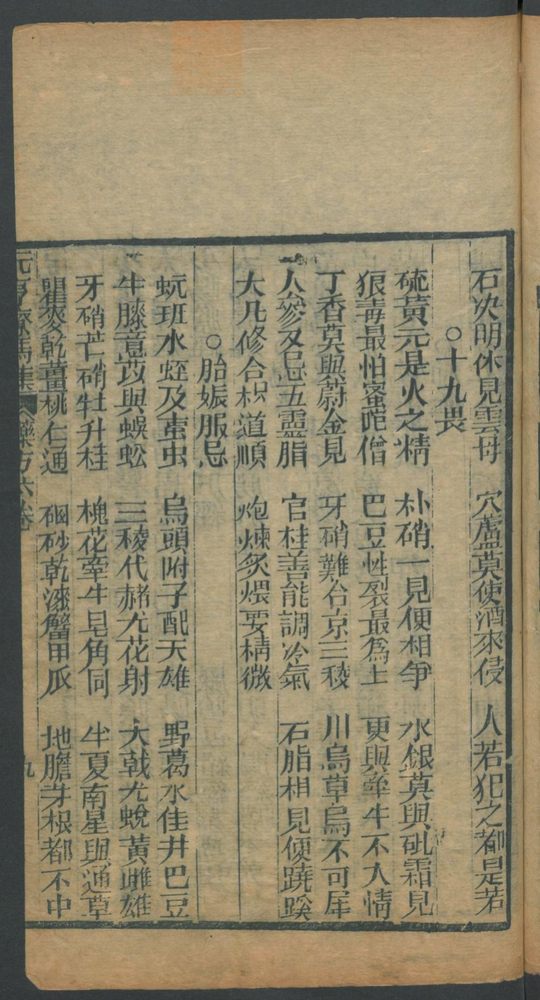 石決明休見雲母　穴蘆莫使酒來侵　人若犯之都是若
○十九畏
硫黃元是火之精　朴硝一見便相爭　水銀莫與砒霜見
狼毒最怕蜜陀僧　巴豆性裂最為上　更與牽牛不入情
丁香莫與蔚金見　牙硝難合京三稜　川烏草烏不可犀
人參又忌五靈脂　官桂善能調冷氣　石脂相見便蹺蹊
大凡修合相道順　炮煉炙煨要精微
○胎娠服忌
蚖班水蛭及䖟虫　烏頭附子配天雄　野葛水佳井巴豆
牛膝薏苡與蜈蚣　三稜代赭尤花射　大戟尤蛻黃雌雄
牙硝芒硝牡升桂　槐花牽牛皂角同　半夏南星與通草
瞿麥乾薑桃仁通　硇砂乾漆蟹甲爪　地膽芽根都不中
元亨療馬集　藥方六卷　九